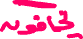 يخافونه